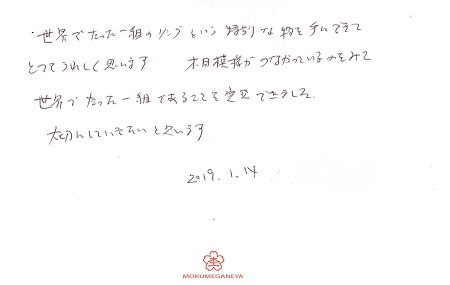 ・世界でたった一組のリングという特別な物を手にできて
とてもうれしく思います 木目模様がつながっているのをみて
世界でたった一組であることを実感できました。
大切にしていきたいと思います
2019.1.14
MOKUMEGANEYA